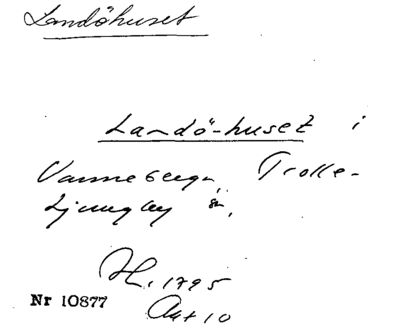 Landöhuset
Landö-huset i
Vanneberga, Trolle-
Ljungby sn,
H. 1795
Nr 10877
Akt 10